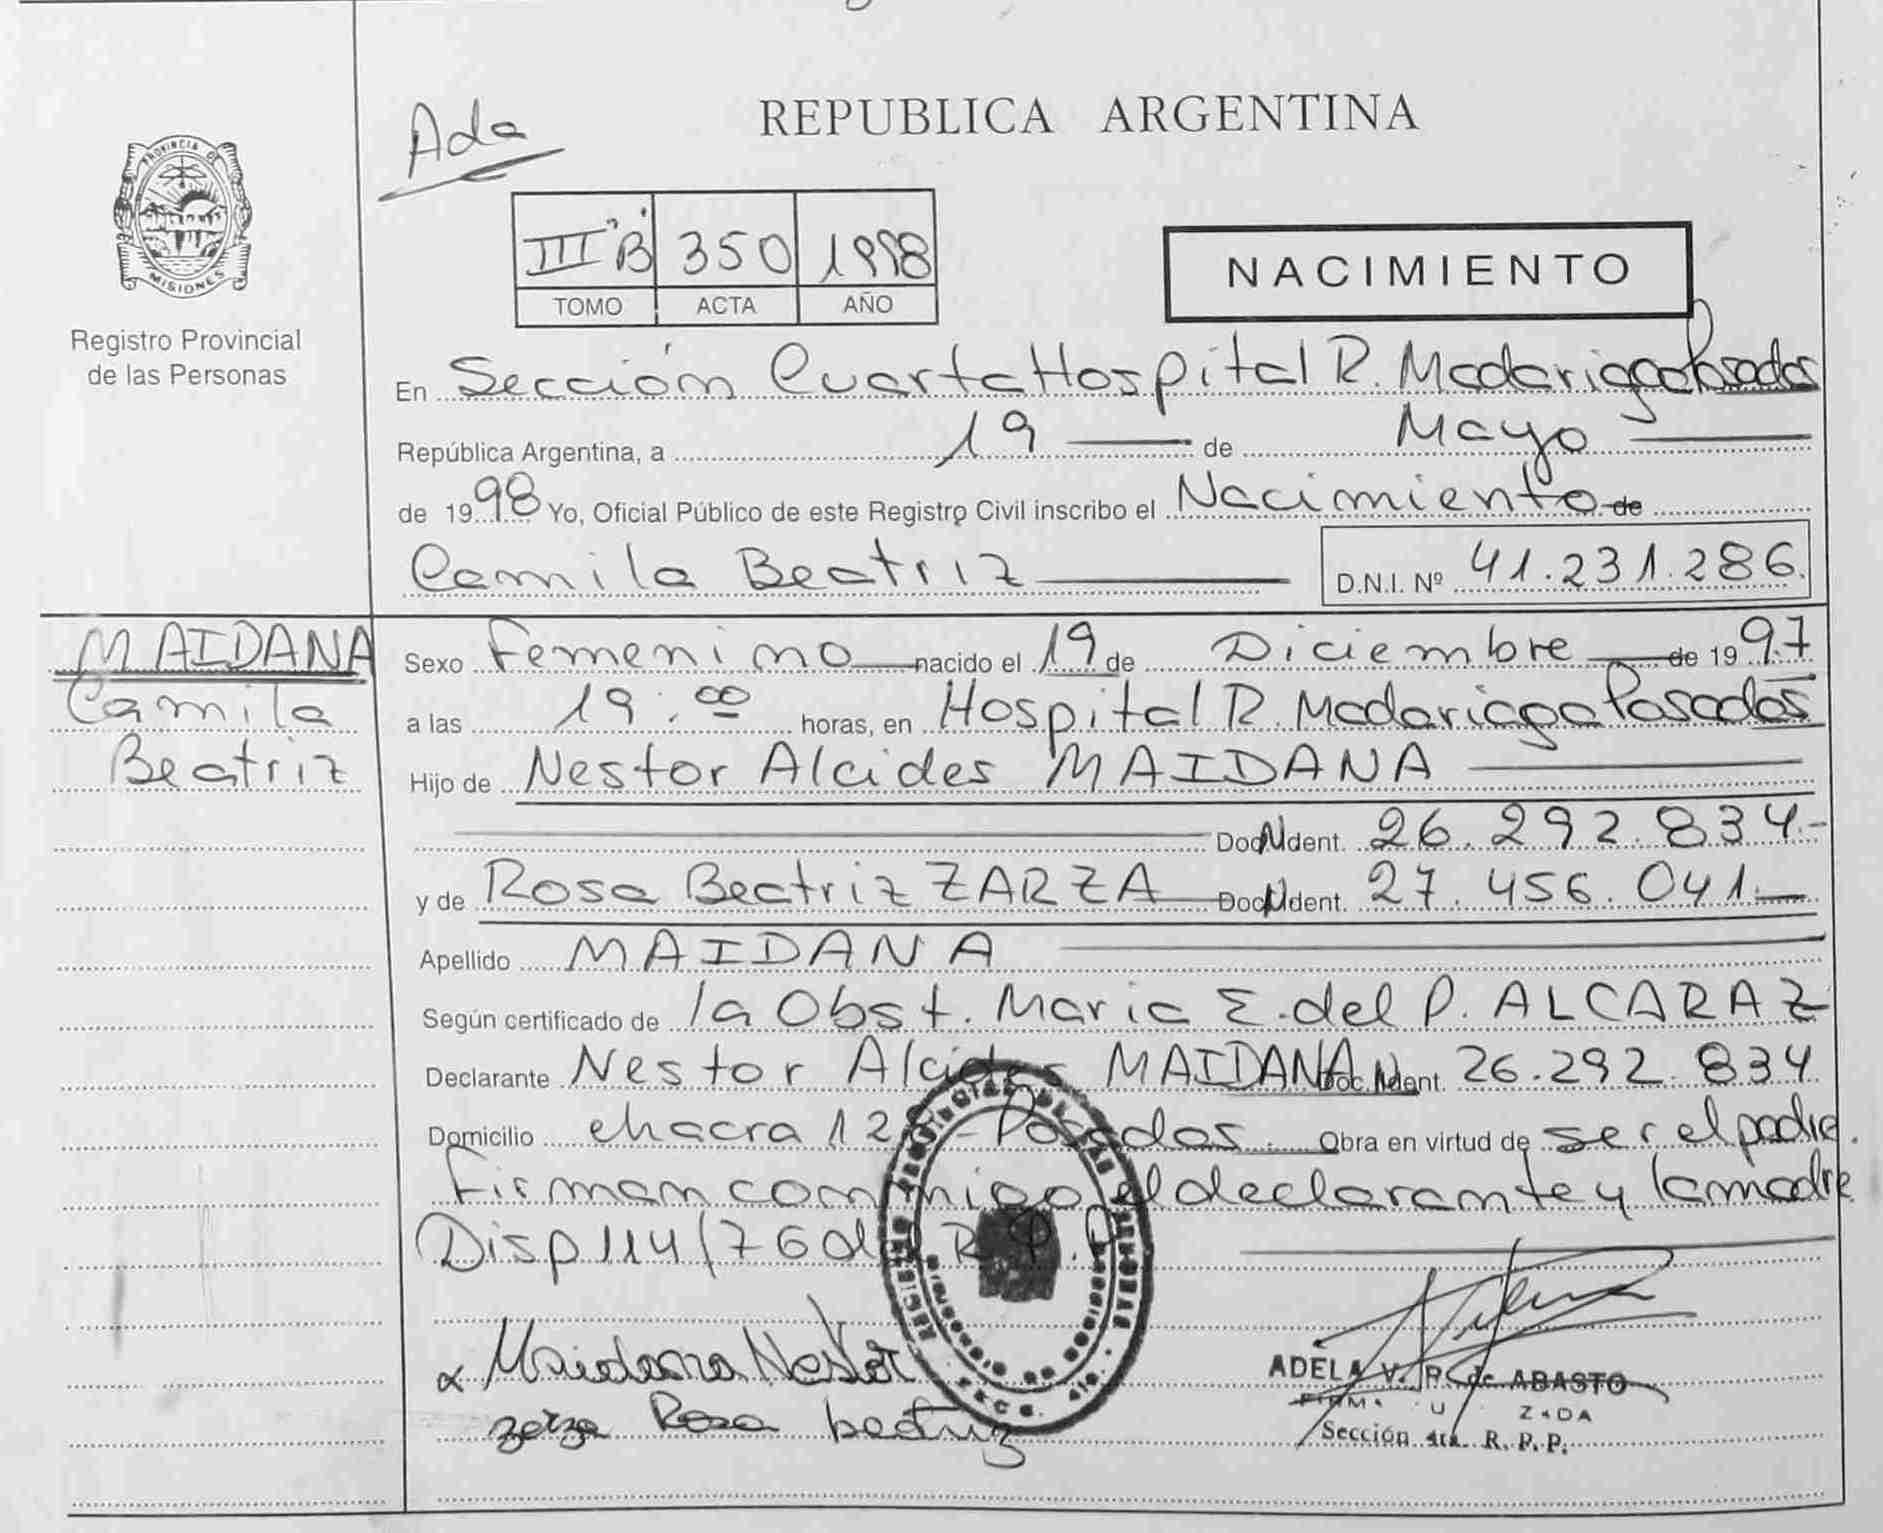 Ada
REPUBLICA ARGENTINA
PROVINCIA DE MISIONES
Registro Provincial
de las Personas
III "B" 350 1998
TOMO ACTA AÑO
NACIMIENTO
En Sección Cuarta Hospital R. Madariaga Posadas
República Argentina, a 19 de Mayo
de 1998 Yo, Oficial Público de este Registro Civil inscribo el Nacimiento de
Camila Beatriz D.N.I. Nº 41.231.286.
MAIDANA
Camila
Beatriz
Sexo Femenino nacido el 19 de Diciembre de 1997
a las 19:00 horas, en Hospital R. Madariaga Posadas
Hijo de Nestor Alcides MAIDANA
Doc. Ident. 26.292.834.-
y de Rosa Beatriz ZARZA Doc. Ident. 27.456.041.-
Apellido MAIDANA
Según certificado de la Obst. Maria E. del P. ALCARAZ
Declarante Nestor Alcides MAIDANA Doc. Ident. 26.292.834
Domicilio chacra - Posadas. Obra en virtud de ser el padre.
Firman conmigo el declarante y la madre
Disp 114/76 del R.P.P.
Maidana Nestor
zarza Rosa beatriz
ADELA V. P. de ABASTO
Sección 4ta. R. P. P.